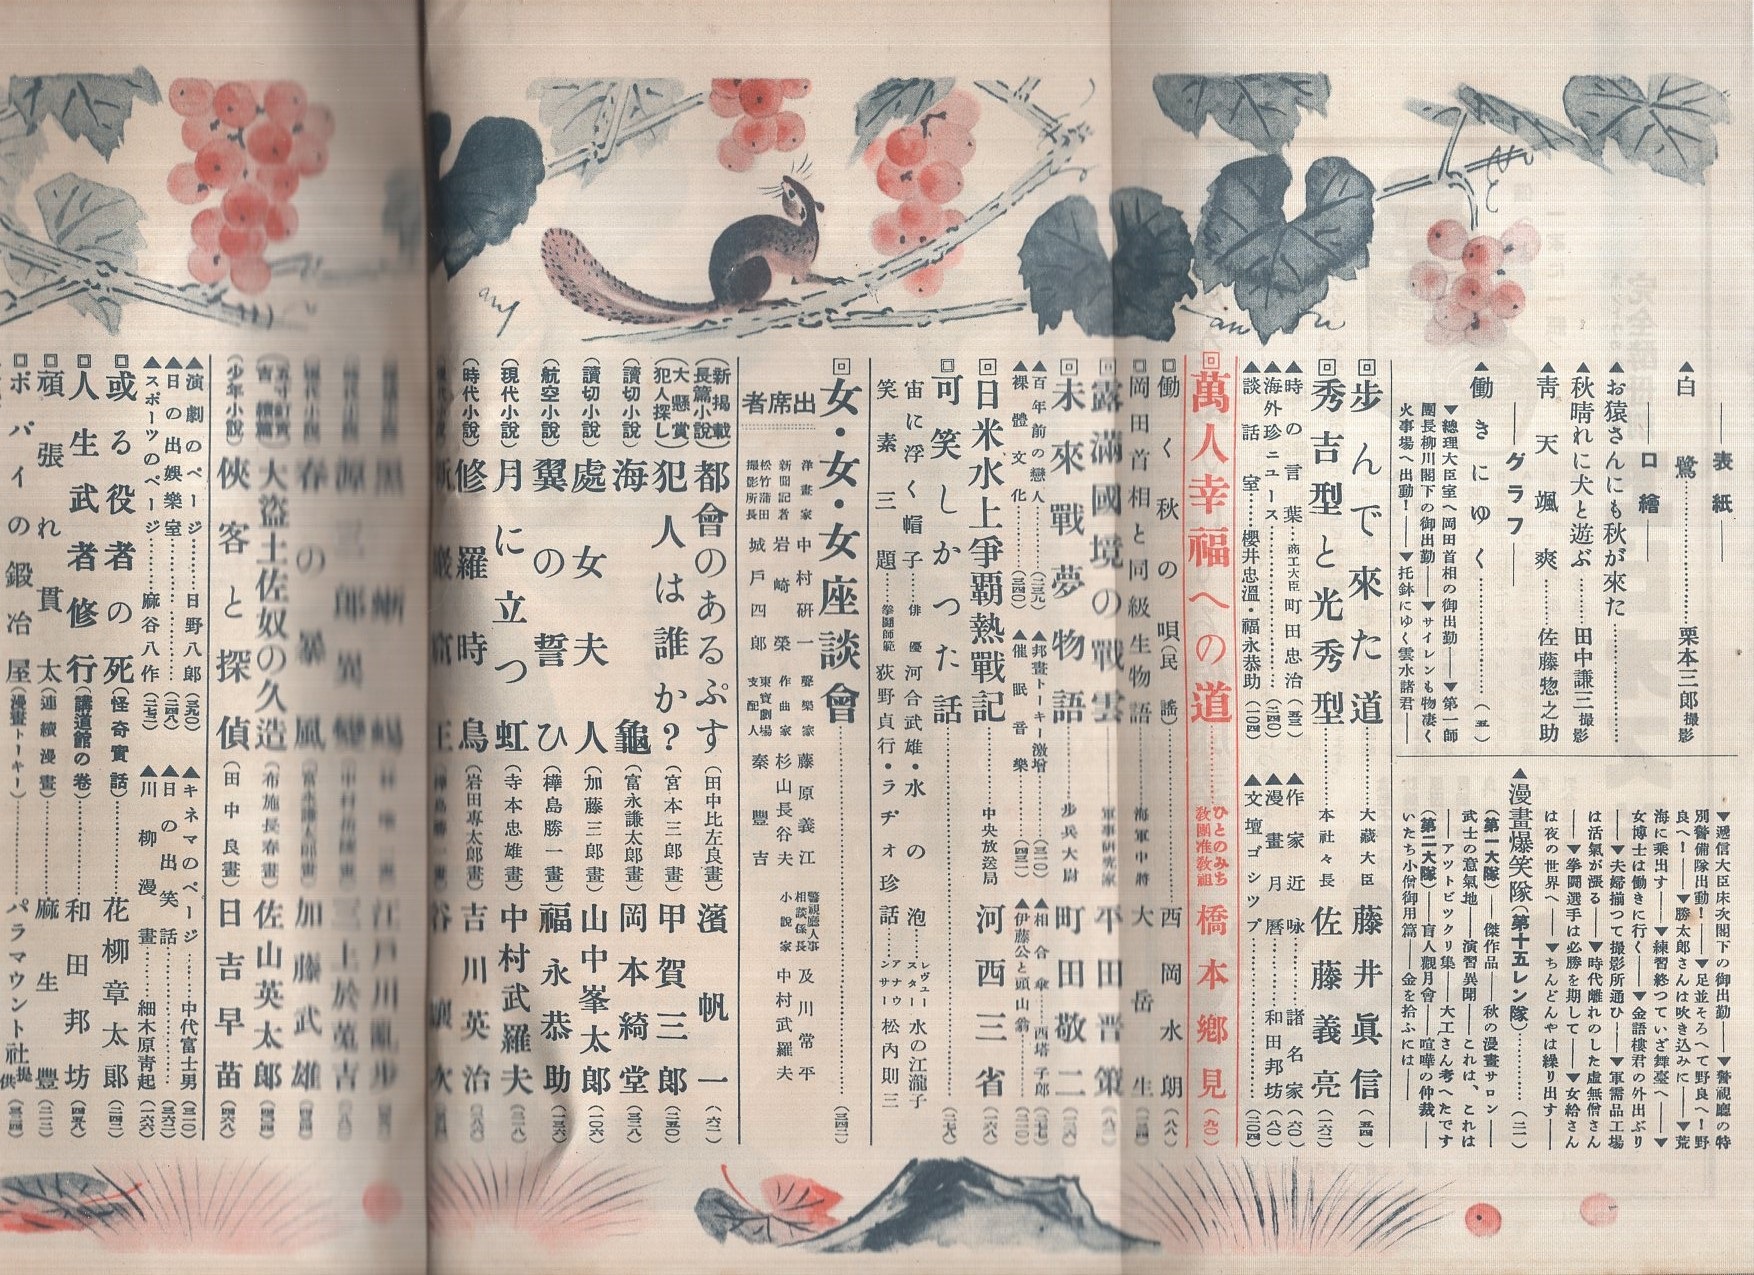 ―表紙―
▲白鷺……………栗本三郎撮影
―口繪―
▲お猿さんにも秋が來た……………
▲秋晴れに犬と遊ぶ……田中謙三撮影
▲青天颯爽……佐藤惣之助
―グラフ―
▲働きにゆく……………(五)
▼總理大臣室へ岡田首相の御出勤――▼第一師
團長柳川閣下の御出勤――▼サイレンも物凄く
火事場へ出動!――▼托鉢にゆく雲水諸君――
▼遞信大臣床次閣下の御出勤――▼警視廳の特
別警備隊出動!――▼足並そろへて野良へ!野
良へ!――▼勝太郎さんは吹き込みに――▼荒
海に乘出す――▼練習終つていざ舞臺へ――▼
女博士は働きに行く――▼金語樓君の外出ぶり
――▼夫婦揃つて撮影所通ひ――▼軍需品工場
は活氣が漲る――▼時代離れのした虛無僧さん
――▼拳鬪選手は必勝を期して――▼女給さん
は夜の世界へ――▼ちんどんやは繰り出す――
▲漫畫爆笑隊(第十五レン隊)…………(二一)
(第一大隊)――傑作品――秋の漫畫サロン――
武士の意氣地――演習異聞――これは、これは
――アツトビツクリ集――大工さん考へたです
(第二大隊)――盲人觀月會――喧嘩の仲裁――
いたち小僧御用篇――金を拾ふには――
回歩んで來た道…………大藏大臣 藤井眞信(五四)
回秀吉型と光秀型…………本社々長 佐藤義亮(六二)
▲時の言葉…商工大臣町田忠治(五三)
▲作家近咏……諸名家(六〇)
▲海外珍ニュース……………(二四〇)
▲漫畫月曆……和田邦坊(八〇)
▲談話室……櫻井忠溫・福永恭助(一〇四)
▲文壇ゴシツプ……………(二〇四)
回萬人幸福への道……ひとのみち教團准教祖 橋本鄕見(九〇)
回働く秋の唄(民謠)……………西岡水朗(八八)
回岡田首相と同級生物語……海軍中將 大岳生
回露滿國境の戰雲……軍事研究家 平田晋策
回未來戰夢物語……步兵大尉 町田敬二
▲百年前の戀人……………(二三九)
▲邦畫トーキー激增……(三一〇)
▲相合傘……西塔子郎
▲裸體文化……………(三四〇)
▲催眠音樂……………(四三二)
▲伊藤公と頭山翁……(二二〇)
回日米水上爭覇熱戰記…………中央放送局 河西三省
回可笑しかつた話……………(二七八)
宙に浮く帽子…俳優 河合武雄・水の泡……レヴュースター 水の江瀧子
笑素三題…拳鬪師範 荻野貞行・ラヂオ珍話……アナウンサー 松内則三
回女・女・女座談會……………(三四二)
出席者
洋畫家 中村硏一 聲樂家 藤原義江 警視廳人事相談係長 及川常平
新聞記者 岩崎榮 作曲家 杉山長谷夫 小說家 中村武羅夫
松竹蒲田撮影所長 城戶四郎 東寶劇場支配人 秦豐吉
(新揭載長篇小說)都會のあるぷす(田中比左良畫)濱帆一(六二)
(大懸賞犯人探し)犯人は誰か?(宮本三郎畫)甲賀三郎(二五〇)
(讀切小說)海龜(富永謙太郎畫)岡本綺堂(三二八)
(讀切小說)處女夫人(加藤三郎畫)山中峯太郎(一〇六)
(航空小說)翼の誓ひ(樺島勝一畫)福永恭助
(現代小說)月に立つ虹(寺本忠雄畫)中村武羅夫
(時代小說)修羅時鳥(岩田專太郎畫)吉川英治
春の暴風 加藤武雄
大盜土佐奴の久造(布施長春畫)佐山英太郎
(少年小說)俠客と探偵(田中良畫)日吉早苗
▲演劇のページ……日野八郎
▲キネマのページ……中代富士男(三二〇)
▲日の出娛樂室……………(二四八)
▲日の出笑話……………(三六二)
▲スポーツのページ……麻谷八作
▲川柳漫畫……細木原青起(一六六)
回或る役者の死(怪奇實話)……………花柳章太郎
回人生武者修行(講道館の卷)……………和田邦坊
回頑張れ貫太(連續漫畫)……………麻生豐
回ボパイの鍛冶屋(漫畫トーキー)……パラマウント社提供